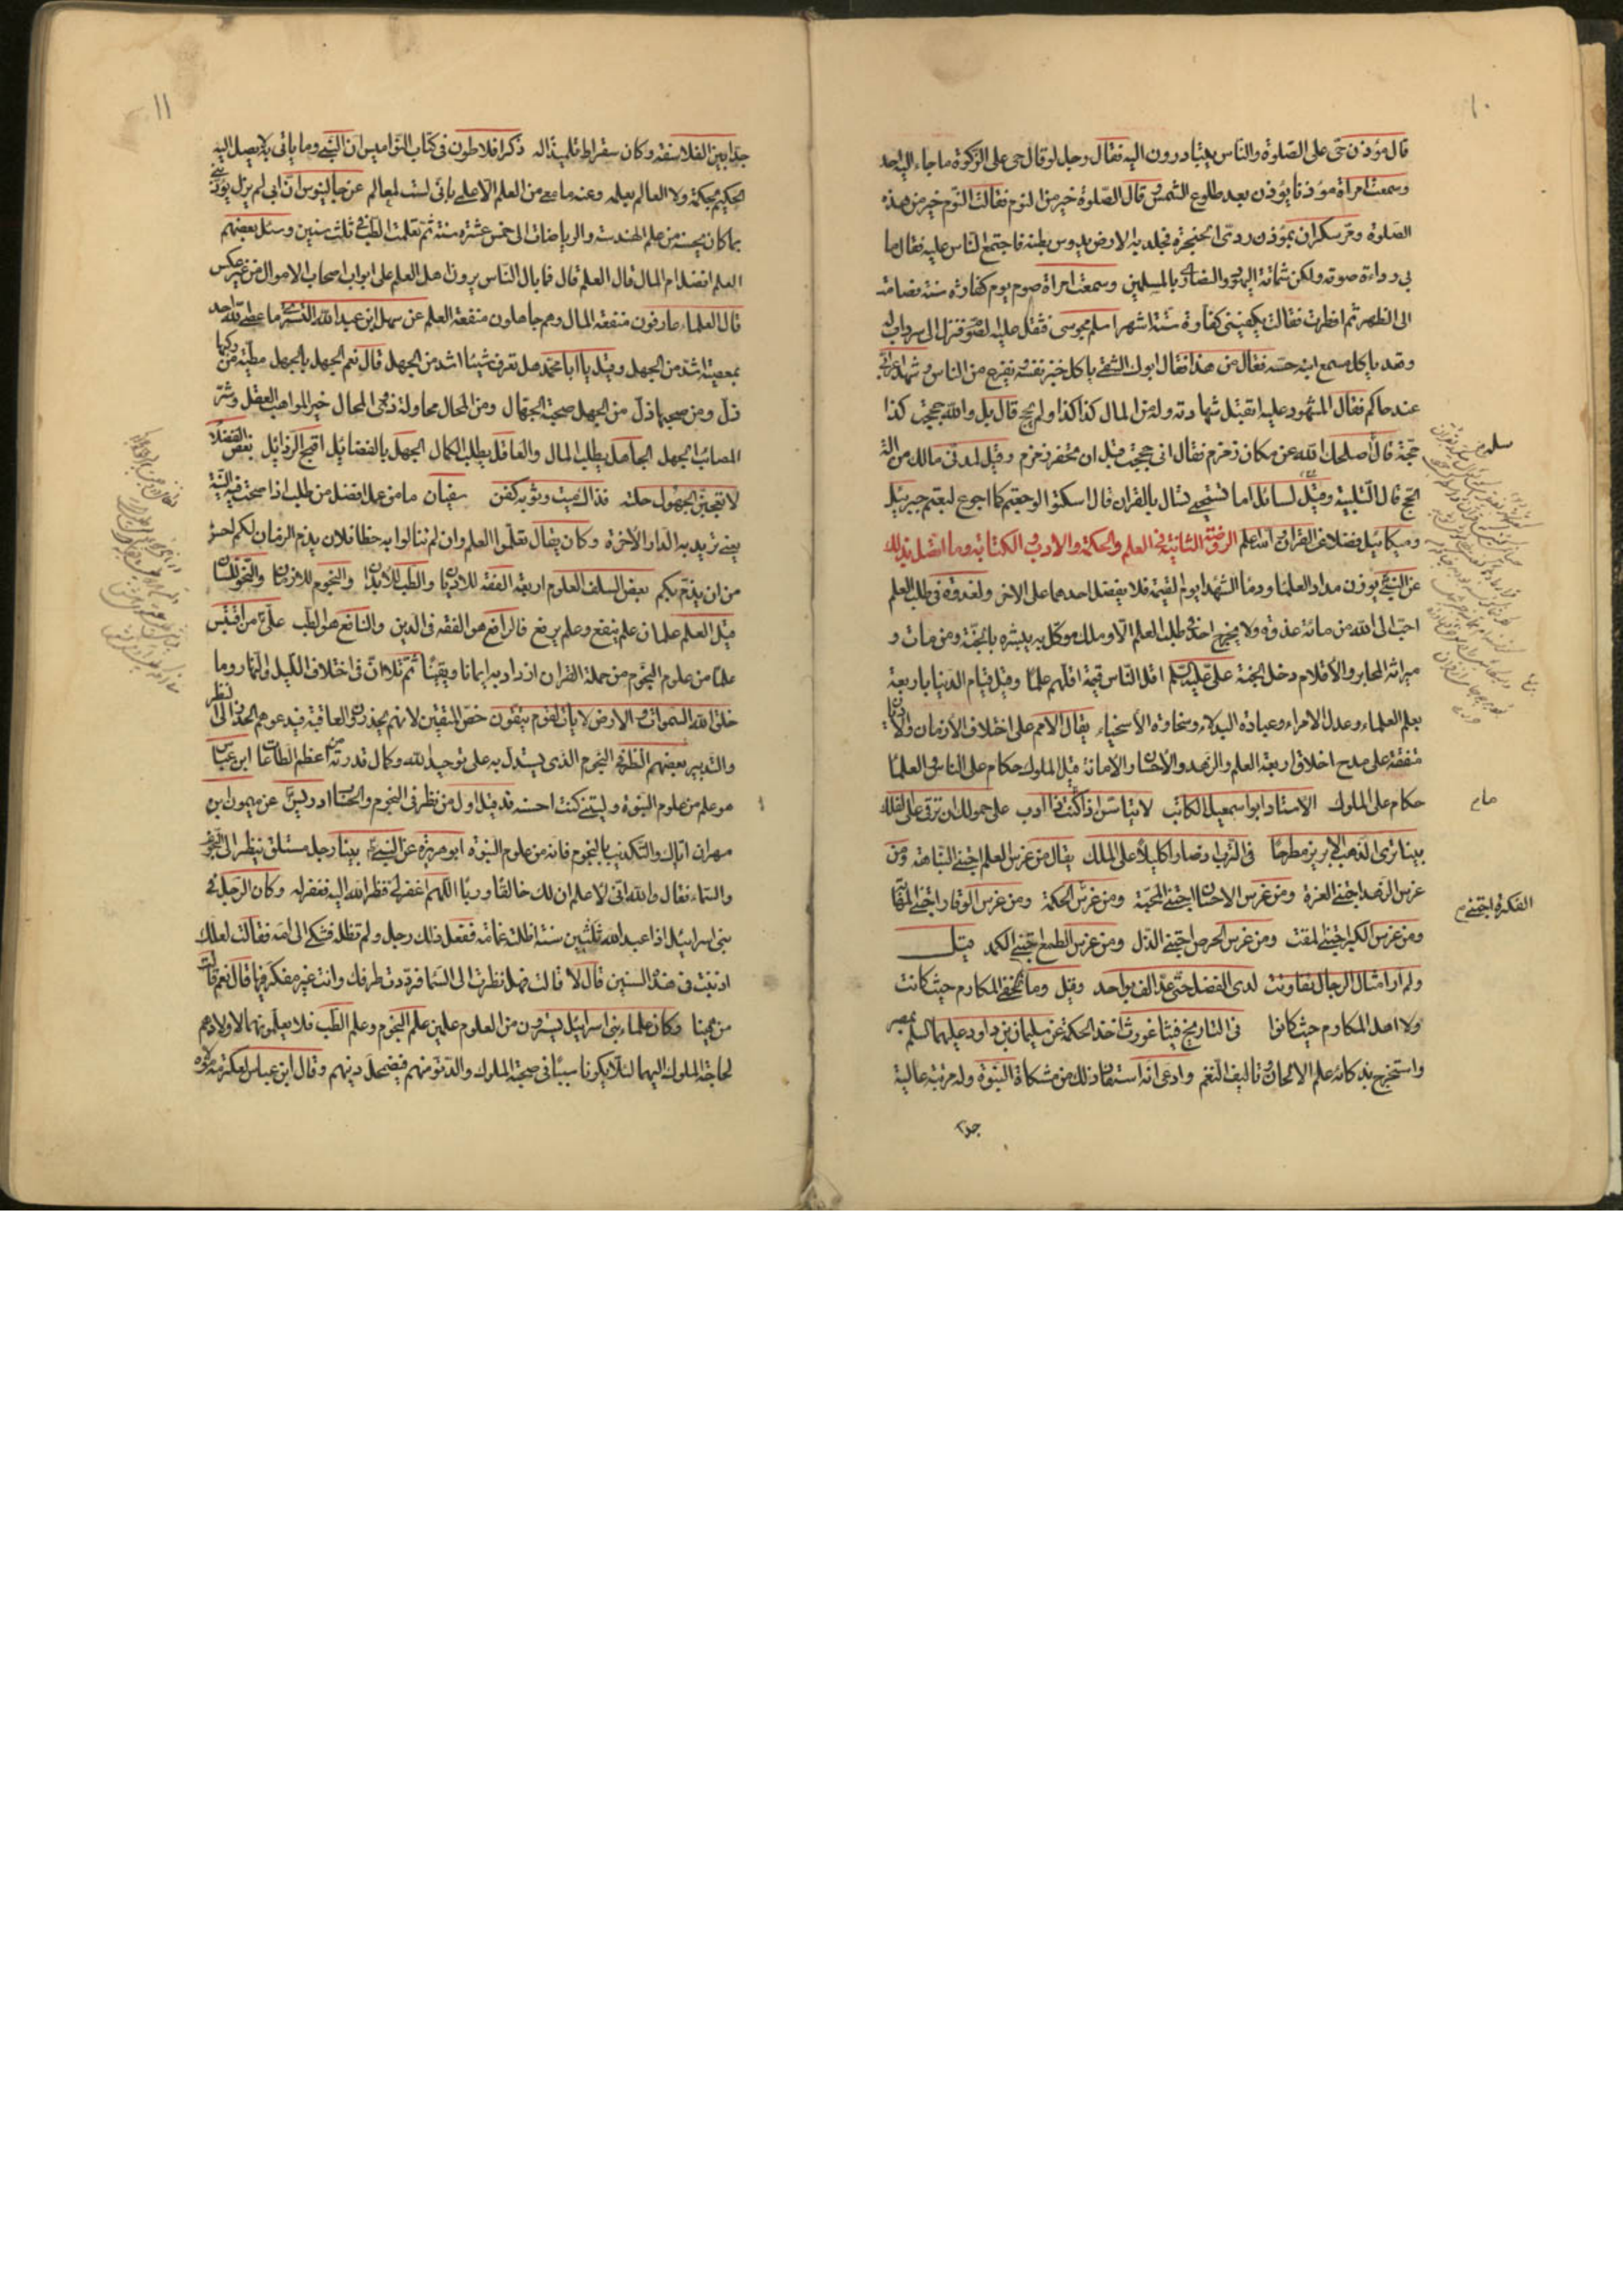 ١٠
قال مؤذن حى على الصلوة والناس يتبادرون اليه فقال رجل لو قال حى على الزكوة ما جاء اليه احد
وسمعت امراة مؤذنا يؤذن بعد طلوع الشمس قال الصلوة خير من النوم فقالت النوم خير من هذه
الصلوة ومر سكران بمؤذن ردى الحنجرة فجلد به الارض يدوس بطنه فاجتمع الناس عليه فقال ما
بى رداءة صوته ولكن شماتة اليهود والنصارى بالمسلمين وسمعت امراة صوم يوم كفارة سنة فصامت
الى الظهر ثم افطرت فقالت يكفينى كفارة ستة اشهر اسلم مجوسى فثقل عليه الصوم فنزل الى سرداب له
وقعد ياكل فسمع ابنه حسه فقال من هذا فقال ابوك الشقى ياكل خبز نفسه ويفزع من الناس وشهد اعرابى
عند حاكم فقال المشهود عليه اتقبل شهادته وله من المال كذا كذا ولم يحج قال بلى والله حججت كذا
حجة قال اصلحك الله سله عن مكان زمزم فقال انى حججت قبل ان تحفر زمزم وقيل لمدنى ما لك من الة
الحج قال التلبية وقيل لسائل اما تستحيى تسال بالقران قال اسكتوا لو جعتم كما اجوع لبعتم جبرئيل
وميكائيل فضلا عن القران والله اعلم الروضة الثانية فى العلم والحكمة والادب والكتابة وما اتصل بذلك
عن النبى يوزن مداد العلما ودما الشهدا يوم القيمة فلا يفضل احدهما على الاخر ولغدوة فى طلب العلم
احب الى الله من مائة غزوة ولا يخرج احد فى طلب العلم الا وملك موكل به يبشره بالجنة ومن مات و
ميراثه المحابر والاقلام دخل الجنة على عليه السلم اقل الناس قيمة اقلهم علما وقيل قيام الدنيا باربعة
بعلم العلماء وعدل الامراء وعبادة البدلاء وسخاوة الاسخياء يقال الامم على اختلاف الازمان والاديان
متفقة على مدح اخلاق اربعة العلم والزهد والاحسان والامانة قيل الملوك حكام على الناس والعلما
حكام على الملوك الاستاد ابو اسمعيل الكاتب لا تيأسن اذا كنت ذا ادب على خمولك ان ترقى على الفلك
بينا ترى الذهب الابريز مطرحا فى الترب اذ صار اكليلا على الملك يقال من غرس العلم اجتنى النباهة ومن
غرس الزهد اجتنى العزة ومن غرس الاحسان اجتنى المحبة ومن غرس الحكمة ومن غرس الوقار اجتنى المهابة
الفكرة اجتنى
ومن غرس الكبر اجتنى المقت ومن غرس الحرص اجتنى الذل ومن غرس الطمع اجتنى الكمد قيل
ولم ار امثال الرجال تفاوتت لدى الفضل حتى عد الف بواحد وقيل وما تخفى المكارم حيث كانت
ولا اهل المكارم حيث كانوا فى التاريخ فيثاغورث اخذ الحكمة عن سليمان بن داود عليهما السلم بمصر
واستخرج بذكائه علم الالحان وتاليف النغم وادعى انه استفاد ذلك من مشكاة النبوة وله مرتبة عالية
جدا
١١
جدا بين الفلاسفة وكان سقراط تلميذا له ذكر افلاطون فى كتاب النواميس ان النبى وما ياتى به لا يصل اليه
الحكيم بحكمة ولا العالم بعلمه وعنه ما معى من العلم الا علمى بانى لست بعالم عن جالينوس ان ابى لم يزل يؤدبنى
بما كان يحسنه من علم الهندسة والرياضات الى خمس عشرة سنة ثم تعلمت الطب فى ثلث سنين وسئل بعضهم
العلم افضل ام المال قال العلم قال فما بال الناس يرون اهل العلم على ابواب اصحاب الاموال من غير عكس
قال العلماء عارفون منفعة المال وهم جاهلون منفعة العلم عن سهل ابن عبد الله التسترى ما عصى الله احد
بمعصية اشد من الجهل وقيل يا ابا محمد هل تعرف شيئا اشد من الجهل قال نعم الجهل بالجهل مطية من ركبها
ذل ومن صحبها ذل من الجهل صحبة الجهال ومن المحال محاولة ذوى المحال خير المواهب العقل وشر
المصائب الجهل الجاهل يطلب المال والعاقل يطلب الكمال الجهل بالفضائل اقبح الرذائل بعض الفضلا
لا تعجبن الجهول حلته فذاك ميت وثوبه كفن سفيان ما من عمل افضل من طلب اذا صحت فيه النية
يعنى تريد به الدار الاخرة وكان يقال تعلموا العلم وان لم تنالوا به حظا فلان يذم الزمان لكم احسن
من ان يذم بكم بعض السلف العلوم اربعة الفقه للاديان والطب للابدان والنجوم للازمان والنحو للسان
قيل العلم علمان علم ينفع وعلم يرفع فالرافع هو الفقه فى الدين والنافع هو الطب على من اقتبس
علما من علوم النجوم من حملة القران ازداد به ايمانا ويقينا ثم تلا ان فى اختلاف الليل والنهار وما
خلق الله السموات والارض لايات لقوم يتقون خص المتقين لانهم يحذرون العاقبة فيدعوهم الحذر الى النظر
والتدبير بعضهم النظر فى النجوم الذى يستدل به على توحيد الله وكمال قدرته من اعظم الطاعات ابن عباس
هو علم من علوم النبوة وليتنى كنت احسنه قد قيل اول من نظر فى النجوم والحساب ادريس عن ميمون بن
مهران اياك والتكذيب بالنجوم فانه من علوم النبوة ابو هريرة عن النبى بينا رجل مستلق ينظر الى النجوم
والسماء فقال والله انى لاعلم ان لك خالقا وربا اللهم اغفر لى فنظر الله اليه فغفر له وكان الرجل فى
بنى اسرائيل اذا عبد الله ثلثين سنة اظلته غمامة ففعل ذلك رجل ولم تظله فشكى الى امه فقالت لعلك
اذنبت فى هذه السنين قال لا قالت فهل نظرت الى السما فرددت طرفك وانت غير مفكر فيها قال نعم قالت
من هيهنا وكان علماء بنى اسرائيل يسترون من العلوم علمين علم النجوم وعلم الطب فلا يعلمونهما اولادهم
لحاجة الملوك اليهما لئلا يكونا سببا فى صحبة الملوك والدنو منهم فيضمحل دينهم وقال ابن عباس لعكرمة مولاه